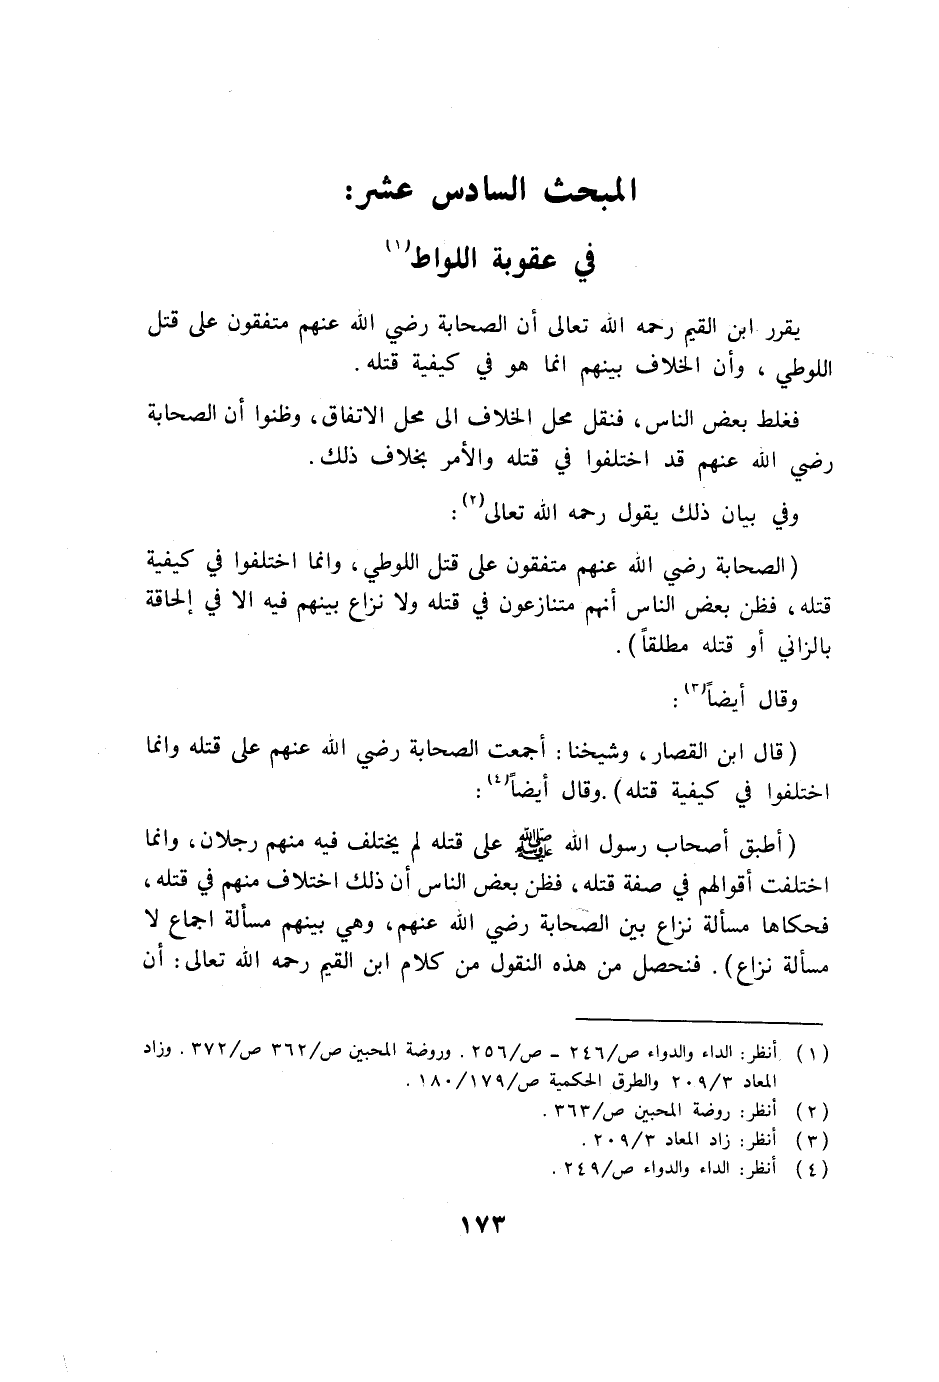 المبحث السادس عشر:
في عقوبة اللواط(١)
يقرر ابن القيم رحمه الله تعالى أن الصحابة رضي الله عنهم متفقون على قتل
اللوطي ، وأن الخلاف بينهم انما هو في كيفية قتله .
فغلط بعض الناس ، فنقل محل الخلاف الى محل الاتفاق ، وظنوا أن الصحابة
رضي الله عنهم قد اختلفوا في قتله والأمر بخلاف ذلك .
وفي بيان ذلك يقول رحمه الله تعالى(٢) :
( الصحابة رضي الله عنهم متفقون على قتل اللوطي ، وانما اختلفوا في كيفية
قتله ، فظن بعض الناس أنهم متنازعون في قتله ولا نزاع بينهم فيه الا في إلحاقة
بالزاني أو قتله مطلقاً ) .
وقال أيضاً(٣) :
( قال ابن القصار ، وشيخنا : أجمعت الصحابة رضي الله عنهم على قتله وانما
اختلفوا في كيفية قتله ) .وقال أيضاً(٤) :
( أطبق أصحاب رسول الله ﷺ على قتله لم يختلف فيه منهم رجلان ، وانما
اختلفت أقوالهم في صفة قتله ، فظن بعض الناس أن ذلك اختلاف منهم في قتله ،
فحكاها مسألة نزاع بين الصحابة رضي الله عنهم ، وهي بينهم مسألة اجماع لا
مسألة نزاع ) . فنحصل من هذه النقول من كلام ابن القيم رحمه الله تعالى : أن
(١) أنظر: الداء والدواء ص/٢٤٦ - ص/٢٥٦ . وروضة المحبين ص/٣٦٢ ص/٣٧٢ . وزاد
المعاد ٢٠٩/٣ والطرق الحكمية ص/١٨٠/١٧٩ .
(٢) أنظر: روضة المحبين ص/٣٦٣ .
(٣) أنظر: زاد المعاد ٢٠٩/٣ .
(٤) أنظر: الداء والدواء ص/٢٤٩ .
١٧٣